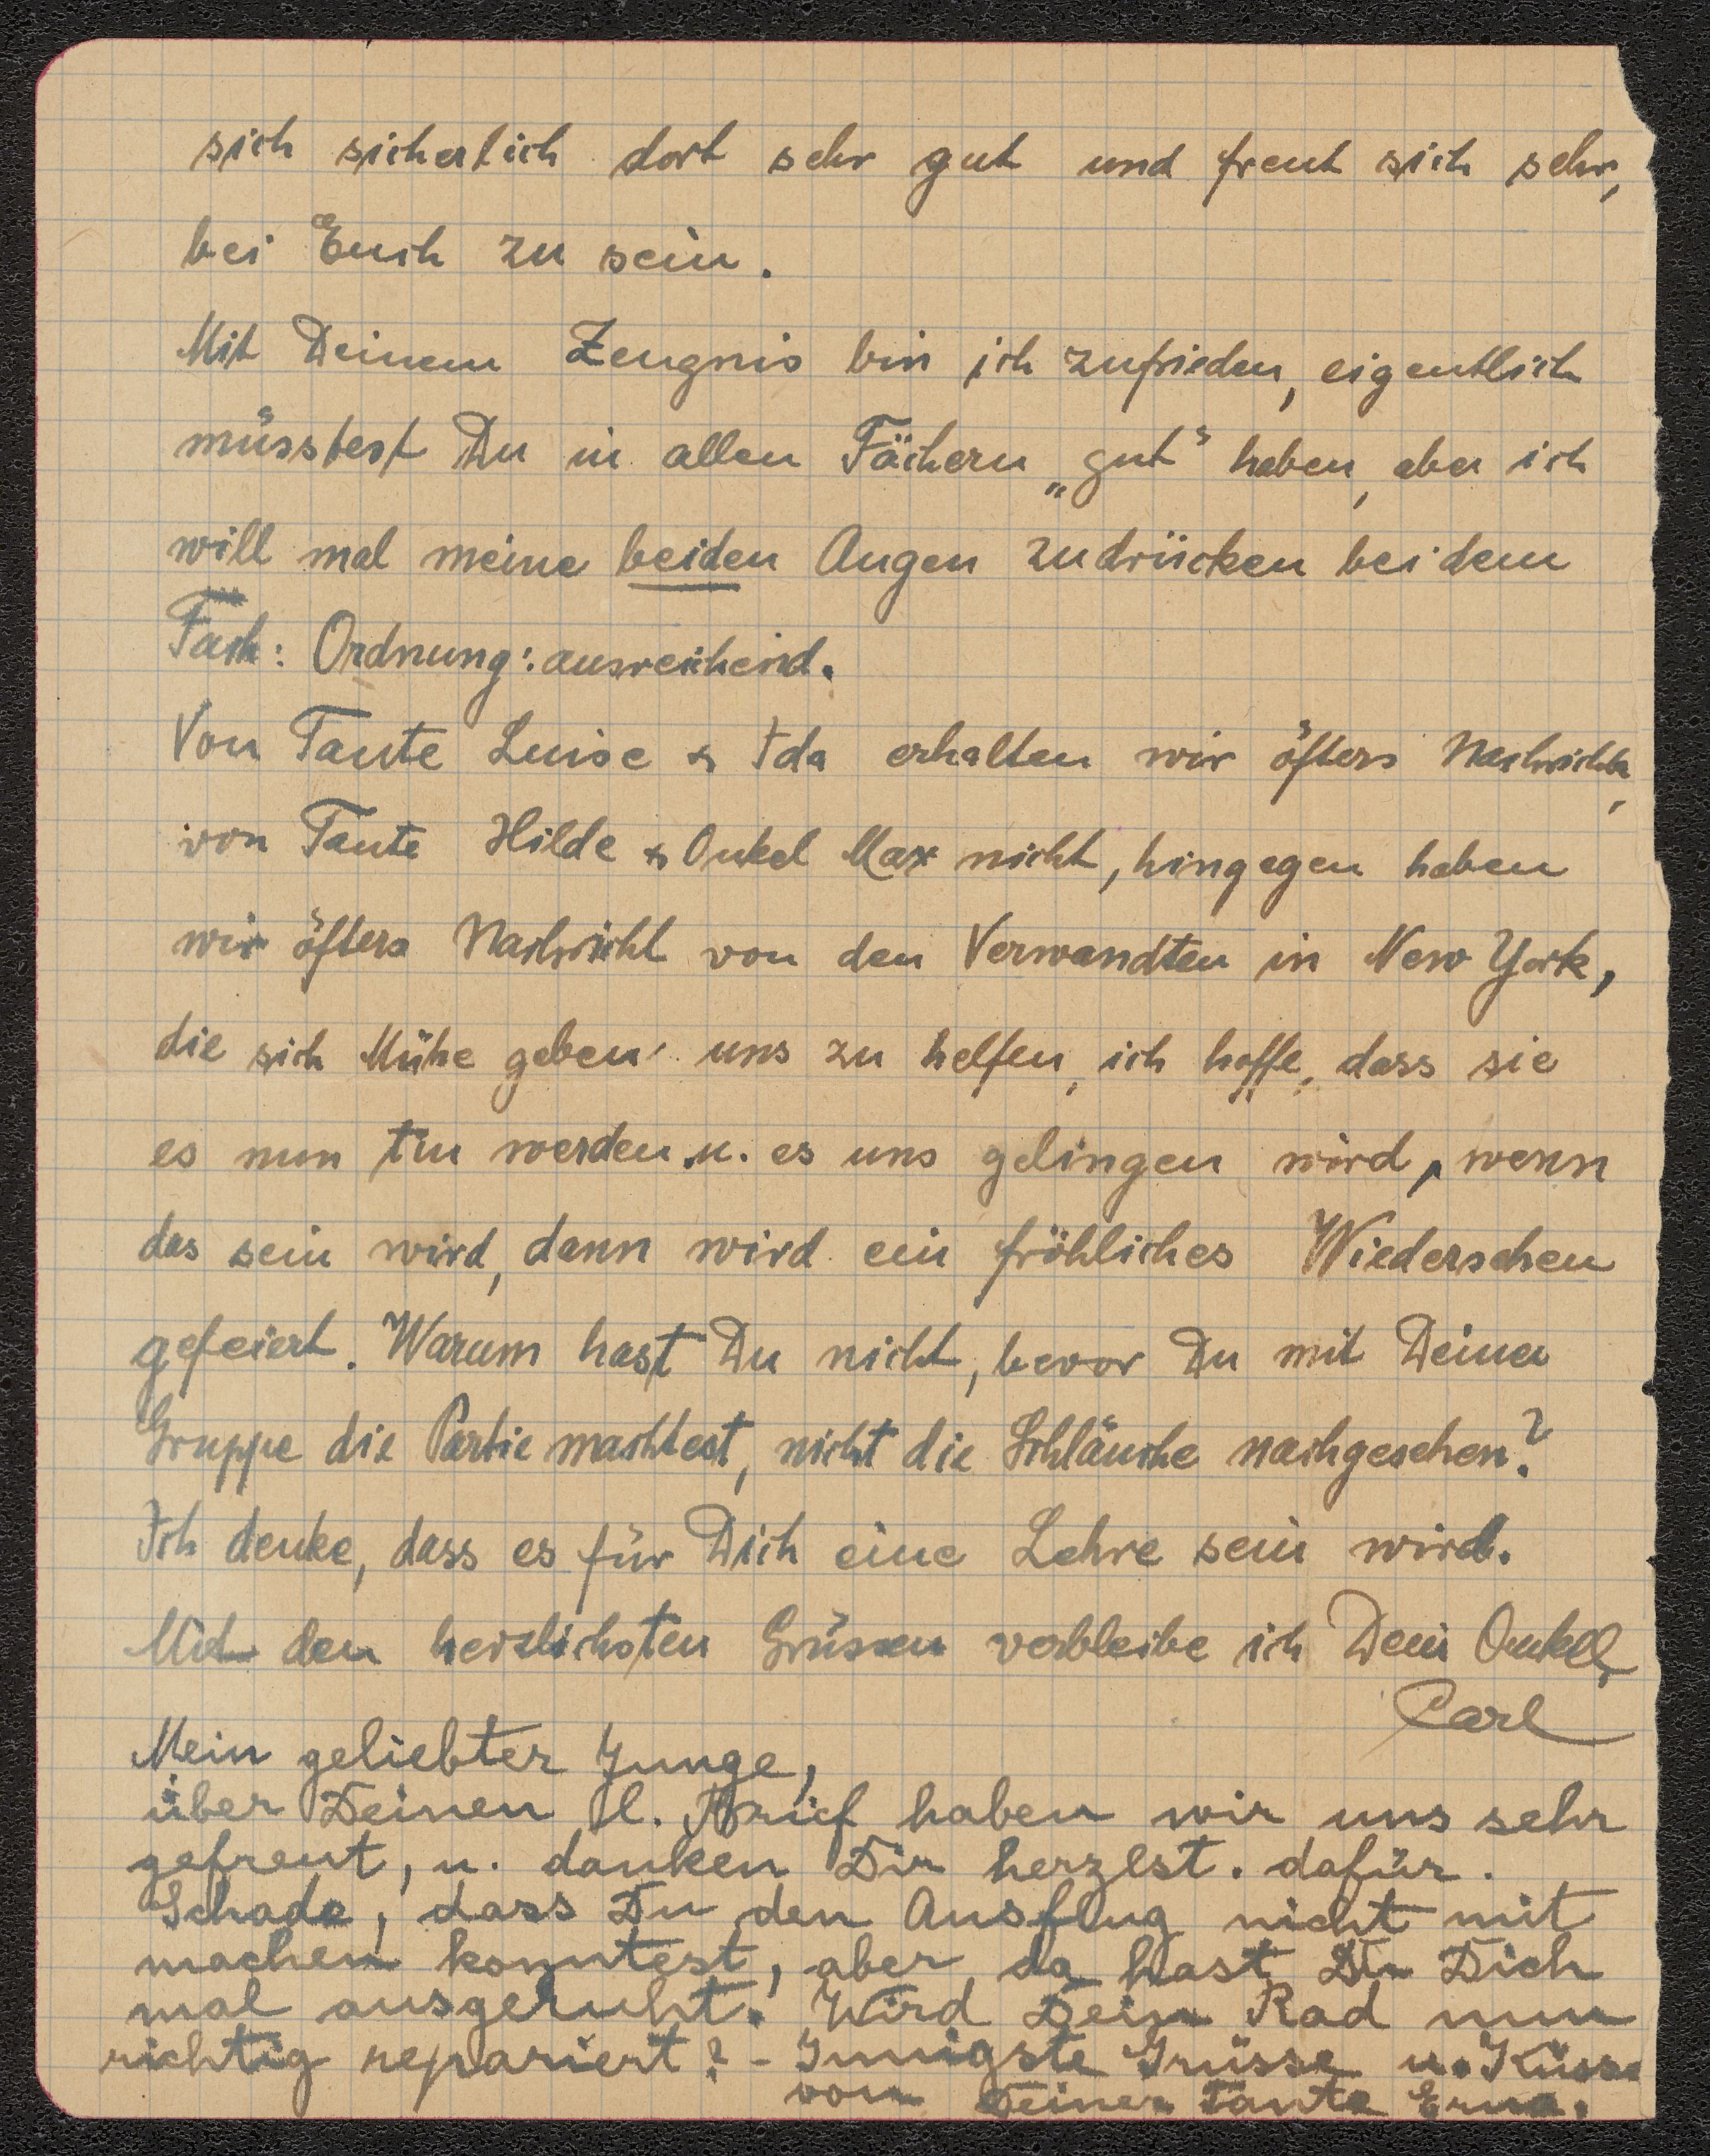 sich sicherlich dort sehr gut und freut sich sehr,
bei Euch zu sein.
Mit Deinem Zeugnis bin ich zufrieden, eigentlich
müsstest Du in allen Fächern „gut“ haben, aber ich
will mal meine beiden Augen zudrücken bei dem
Fach: Ordnung: ausreichend.
Von Tante Luise & Ida erhalten wir öfters Nachrichten,
von Tante Hilde & Onkel Max nicht, hingegen haben
wir öfters Nachricht von den Verwandten in New York,
die sich Mühe geben uns zu helfen, ich hoffe, dass sie
es nun tun werden u. es uns gelingen wird, wenn
das sein wird, dann wird ein fröhliches Wiedersehen
gefeiert. Warum hast Du nicht, bevor Du mit Deiner
Gruppe die Partie machtest, nicht die Schläuche nachgesehen?
Ich denke, dass es für Dich eine Lehre sein wird.
Mit den herzlichsten Grüssen verbleibe ich Dein Onkel
Carl
Mein geliebter Junge,
über Deinen l. Brief haben wir uns sehr
gefreut, u. danken Dir herzlst. dafür.
Schade, dass Du den Ausflug nicht mit
machen konntest, aber da hast Du Dich
mal ausgeruht. Wird Dein Rad nun
richtig repariert? - Innigste Grüsse u. Küsse
von Deiner Tante Erna.